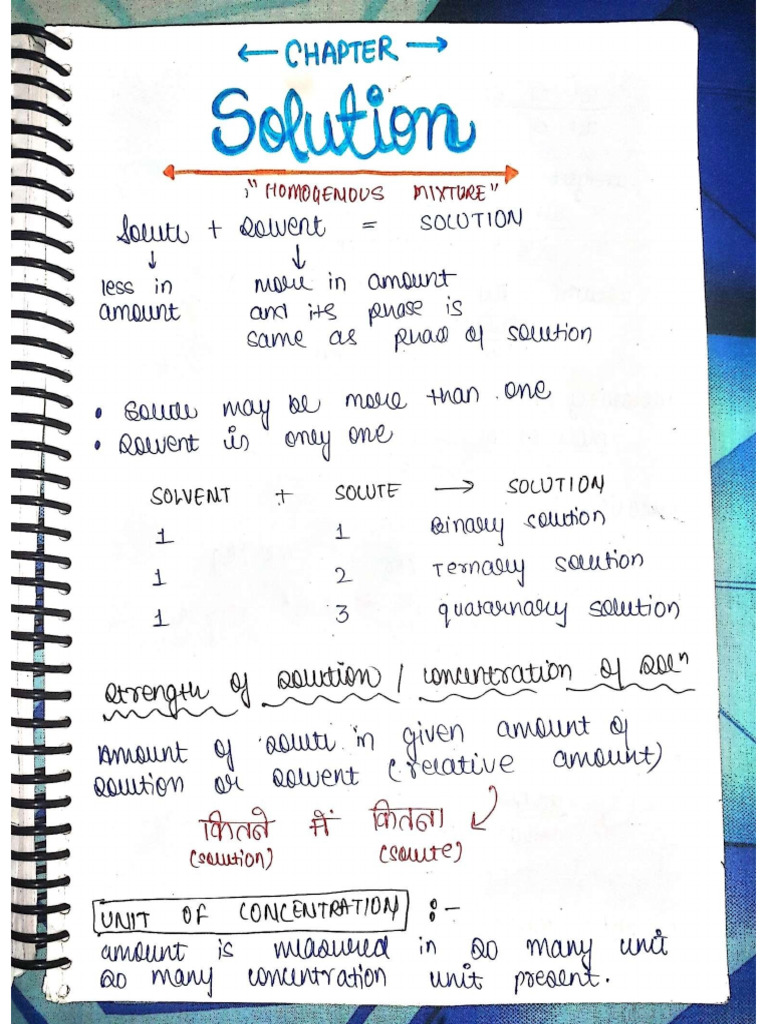 ← CHAPTER →
Solution
"HOMOGENOUS MIXTURE"
Solute + Solvent = SOLUTION
↓ ↓
less in more in amount
amount and its phase is
same as phase of solution
• Solute may be more than one
• Solvent is only one
SOLVENT + SOLUTE → SOLUTION
1 1 Binary solution
1 2 Ternary solution
1 3 quaternary solution
Strength of solution / concentration of solⁿ
Amount of solute in given amount of
solution or solvent (relative amount)
कितने में कितना
(solution) (solute)
UNIT OF CONCENTRATION :-
amount is measured in so many unit
so many concentration unit present.